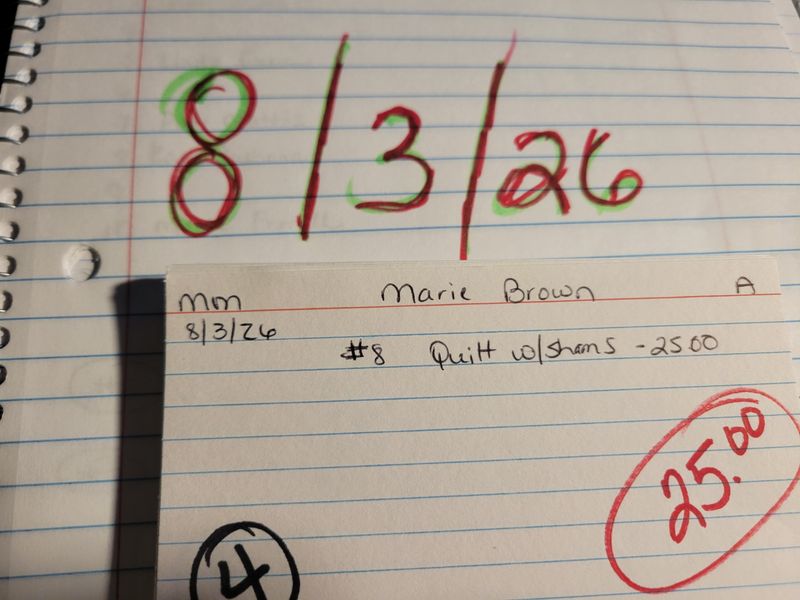 8/3/26
mm Marie Brown A
8/3/26
#8 Quilt w/shams - 25 00
25.00
4